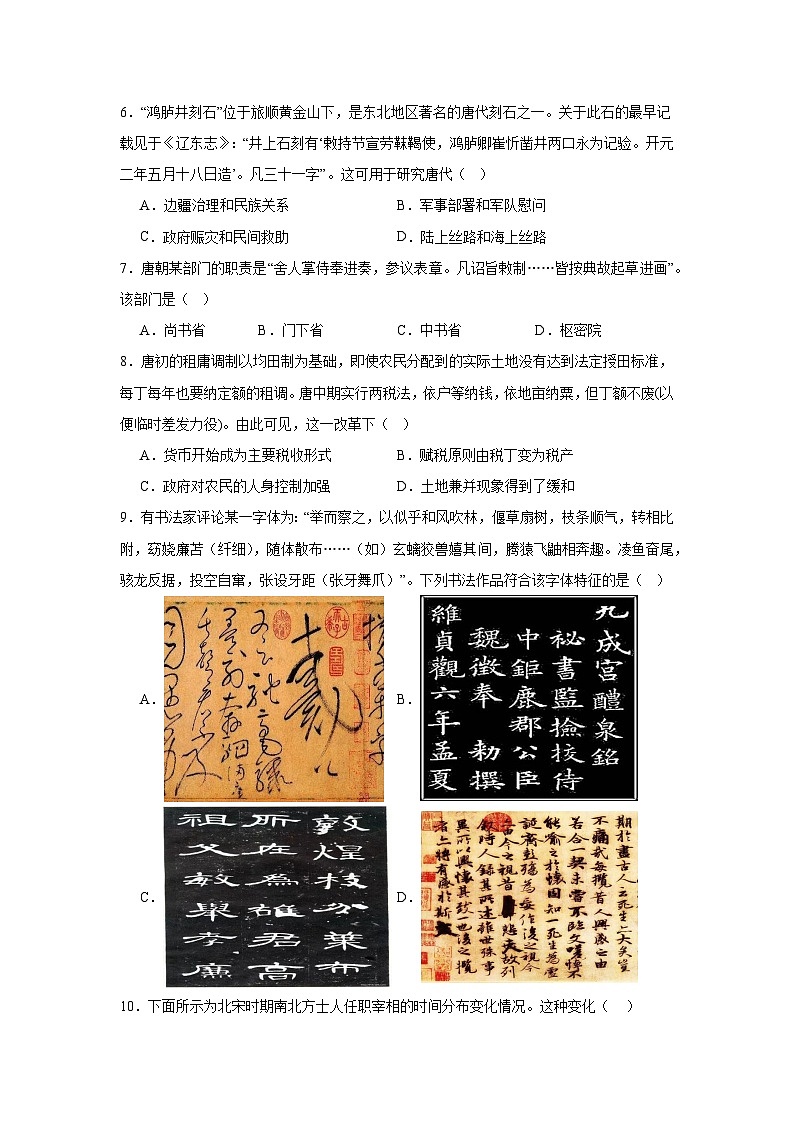 6．“鸿胪井刻石”位于旅顺黄金山下，是东北地区著名的唐代刻石之一。关于此石的最早记
载见于《辽东志》：“井上石刻有‘敕持节宣劳靺鞨使，鸿胪卿崔忻凿井两口永为记验。开元
二年五月十八日造’。凡三十一字”。这可用于研究唐代（　）
A．边疆治理和民族关系　B．军事部署和军队慰问
C．政府赈灾和民间救助　D．陆上丝路和海上丝路
7．唐朝某部门的职责是“舍人掌侍奉进奏，参议表章。凡诏旨敕制……皆按典故起草进画”。
该部门是（　）
A．尚书省　B．门下省　C．中书省　D．枢密院
8．唐初的租庸调制以均田制为基础，即使农民分配到的实际土地没有达到法定授田标准，
每丁每年也要纳定额的租调。唐中期实行两税法，依户等纳钱，依地亩纳粟，但丁额不废(以
便临时差发力役)。由此可见，这一改革下（　）
A．货币开始成为主要税收形式　B．赋税原则由税丁变为税产
C．政府对农民的人身控制加强　D．土地兼并现象得到了缓和
9．有书法家评论某一字体为：“举而察之，以似乎和风吹林，偃草扇树，枝条顺气，转相比
附，窈娆廉苫（纤细），随体散布……（如）玄螭狡兽嬉其间，腾猿飞鼬相奔趣。凌鱼奋尾，
骇龙反据，投空自窜，张设牙距（张牙舞爪）”。下列书法作品符合该字体特征的是（　）
A．
B．
九成宫醴泉銘
祕書監撿挍侍
中鉅鹿郡公臣
魏徵奉 勅撰
維貞觀六年孟夏
C．
敦煌枝分葉布
所在為雄君高
祖父敏舉孝廉
D．
期於盡古人云死生亦大矣豈
不痛哉每攬昔人興感之由
若合一契未嘗不臨文嗟悼不
能喻之於懷固知一死生為虛
誕齊彭殤為妄作後之視今
亦由今之視昔
敘時人錄其所述雖世殊事
異所以興懷其致一也後之攬
者亦將有感於斯
10．下面所示为北宋时期南北方士人任职宰相的时间分布变化情况。这种变化（　）